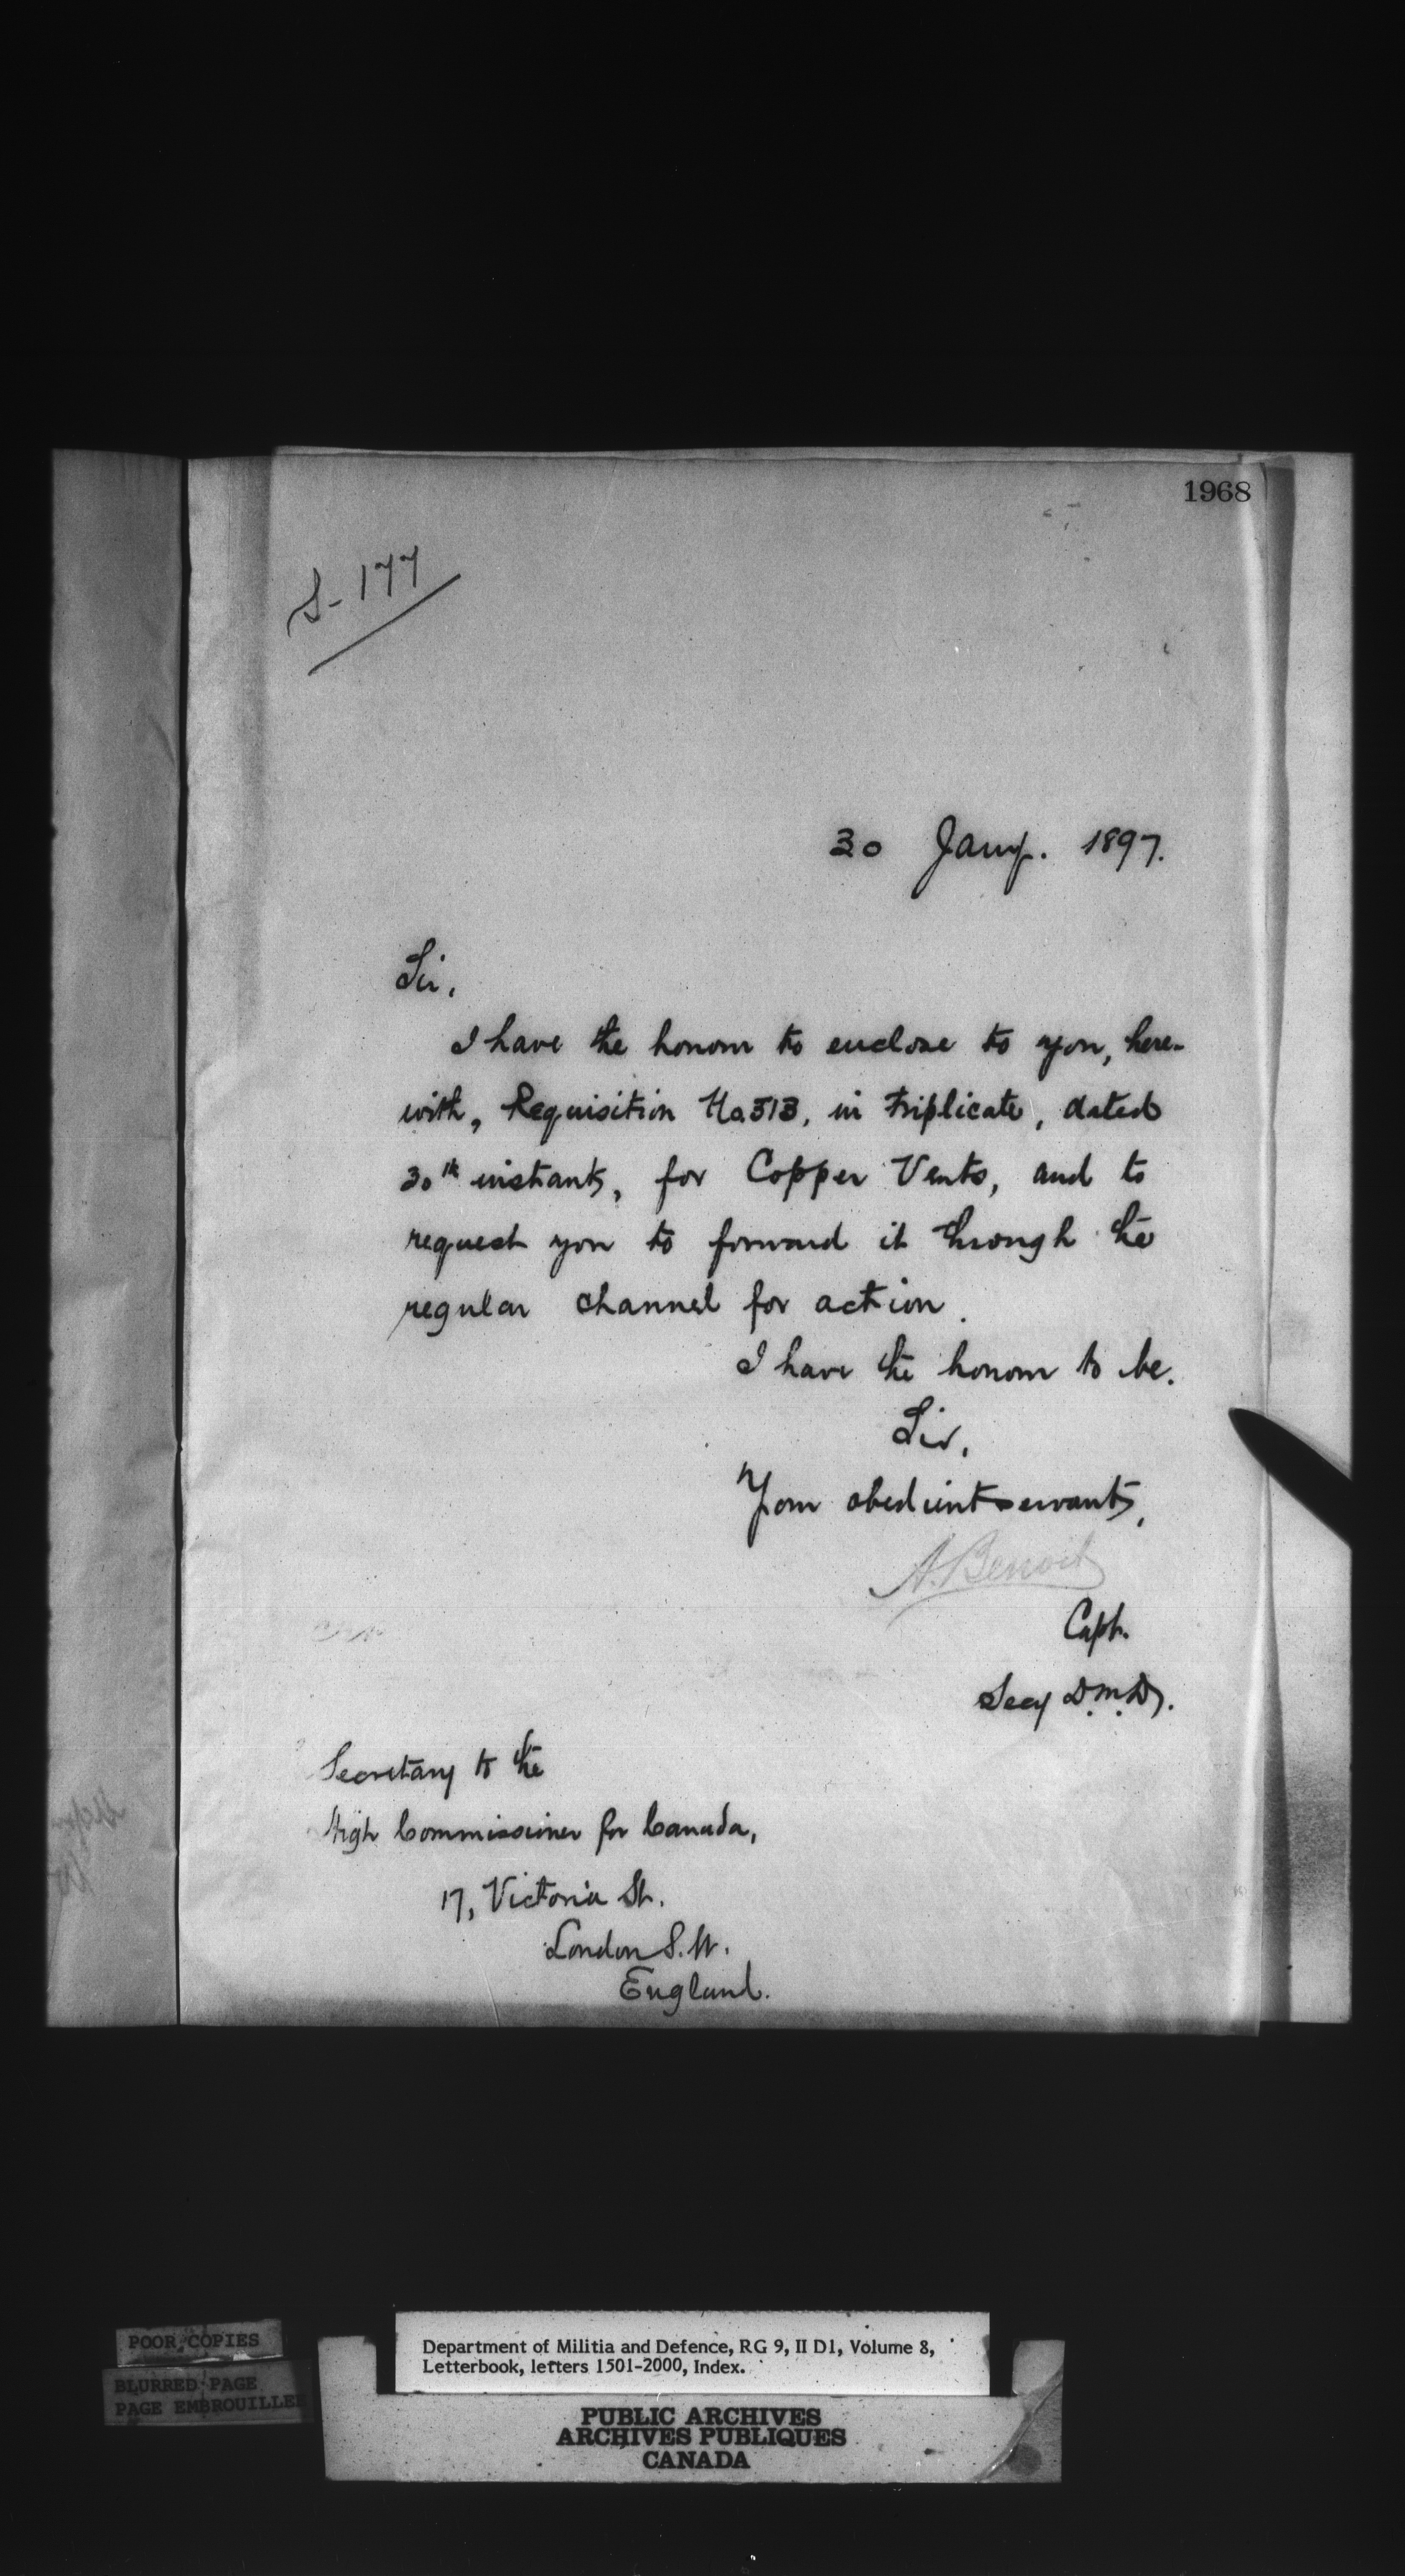 1968
S-177
30 Jany. 1897.
Sir,
I have the honour to enclose to you, here-
with, Requisition No 513, in triplicate, dated
30th instant, for Copper Vents, and to
request you to forward it through the
regular channel for action.
I have the honour to be.
Sir,
Your obedient servant,
A. Benoit
Capt.
Secy D.M.D.
Secretary to the
High Commissioner for Canada,
17, Victoria St.
London S.W.
England.
POOR COPIES
BLURRED PAGE
PAGE EMBROUILLEE
Department of Militia and Defence, RG 9, II D1, Volume 8,
Letterbook, letters 1501-2000, Index.
PUBLIC ARCHIVES
ARCHIVES PUBLIQUES
CANADA